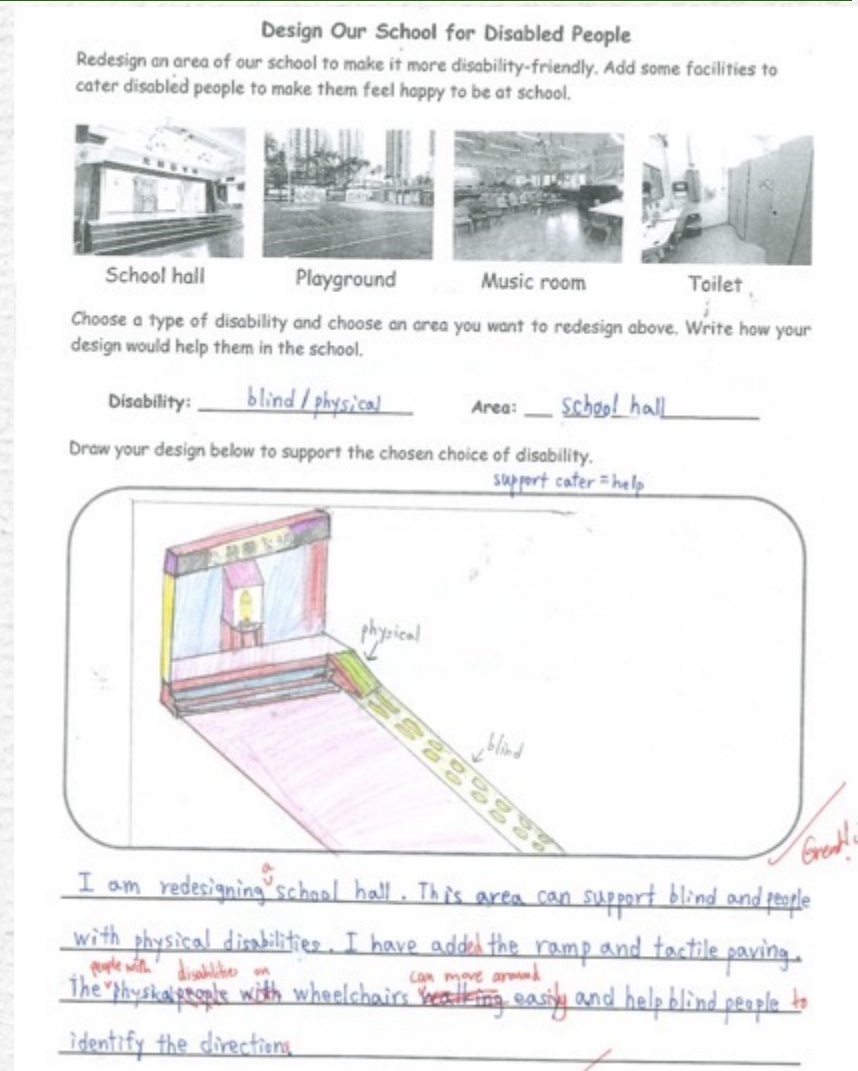 Design Our School for Disabled People
Redesign an area of our school to make it more disability-friendly. Add some facilities to
cater disabled people to make them feel happy to be at school.
School hall Playground Music room Toilet
Choose a type of disability and choose an area you want to redesign above. Write how your
design would help them in the school.
Disability: blind / physical Area: school hall
Draw your design below to support the chosen choice of disability.
support cater = help
physical
blind
Great!
a
I am redesigning school hall. This area can support blind and people
with physical disabilities. I have added the ramp and tactile paving.
people with disabilities on can move around
The physical people with wheelchairs walking easily and help blind people to
identify the directions